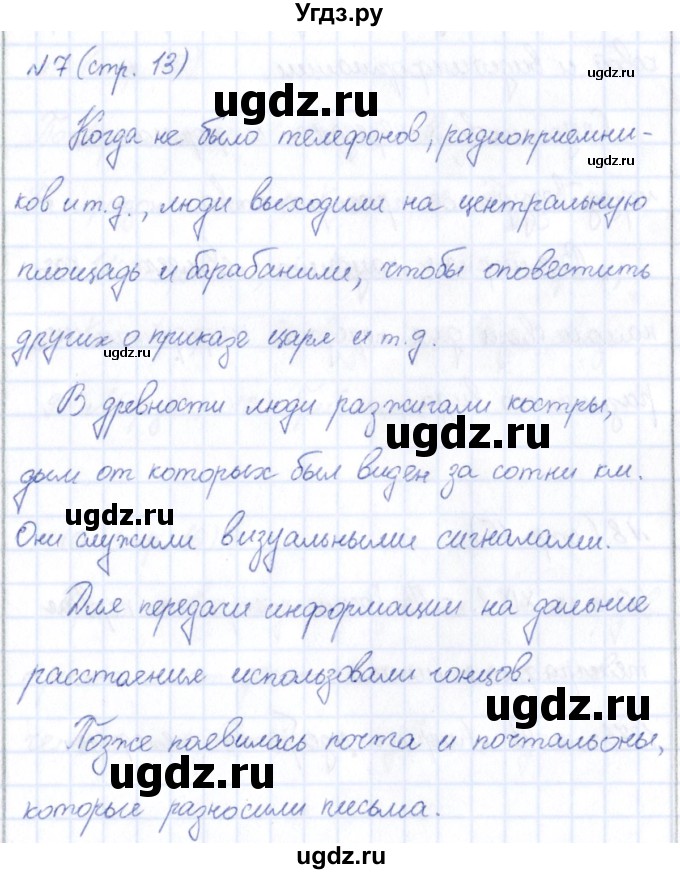 Угдз.ру
№7 (стр. 13)
ugdz.ru
Когда не было телефонов, радиоприемни-
ugdz.ru
ков и т.д., люди выходили на центральную
площадь и барабанили, чтобы оповестить
других о приказе царя и т.д.
ugdz.ru
В древности люди разжигали костры,
ugdz.ru
дым от которых был виден за сотни км.
ugdz.ru
Они служили визуальными сигналами.
Для передачи информации на дальние
расстояния использовали гонцов.
ugdz.ru
Позже появилась почта и почтальоны,
ugdz.ru
которые разносили письма.
ugdz.ru